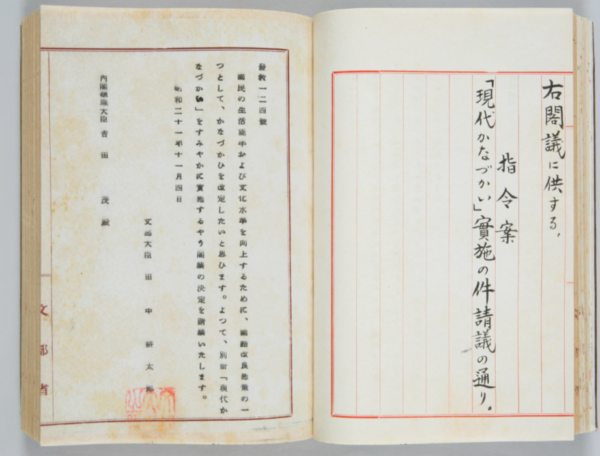 右閣議に供する、
指令案
「現代かなづかい」實施の件請議の通り。
發教一二四號
國民の生活能率および文化水準を向上するために、國語改良施策の一
つとして、かなづかひを改定したいと思ひます。よつて、別冊「現代か
なづかい」をすみやかに實施するやう閣議の決定を請議いたします。
昭和二十一年十一月四日
文部大臣 田中耕太郎
内閣總理大臣 吉田 茂殿
文部省